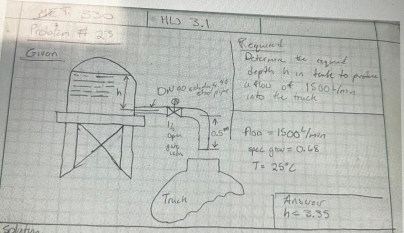 HW 3.1
Problem # 23
Given
h
DN 90 schedule 40
steel pipe
1/2
open
gate
valve
0.5m
Truck
Required
Determine the required
depth h in tank to produce
a flow of 1500 L/min
into the truck
Flow = 1500 L/min
spec grav = 0.68
T = 25°C
Answer
h = 3.35
Solution